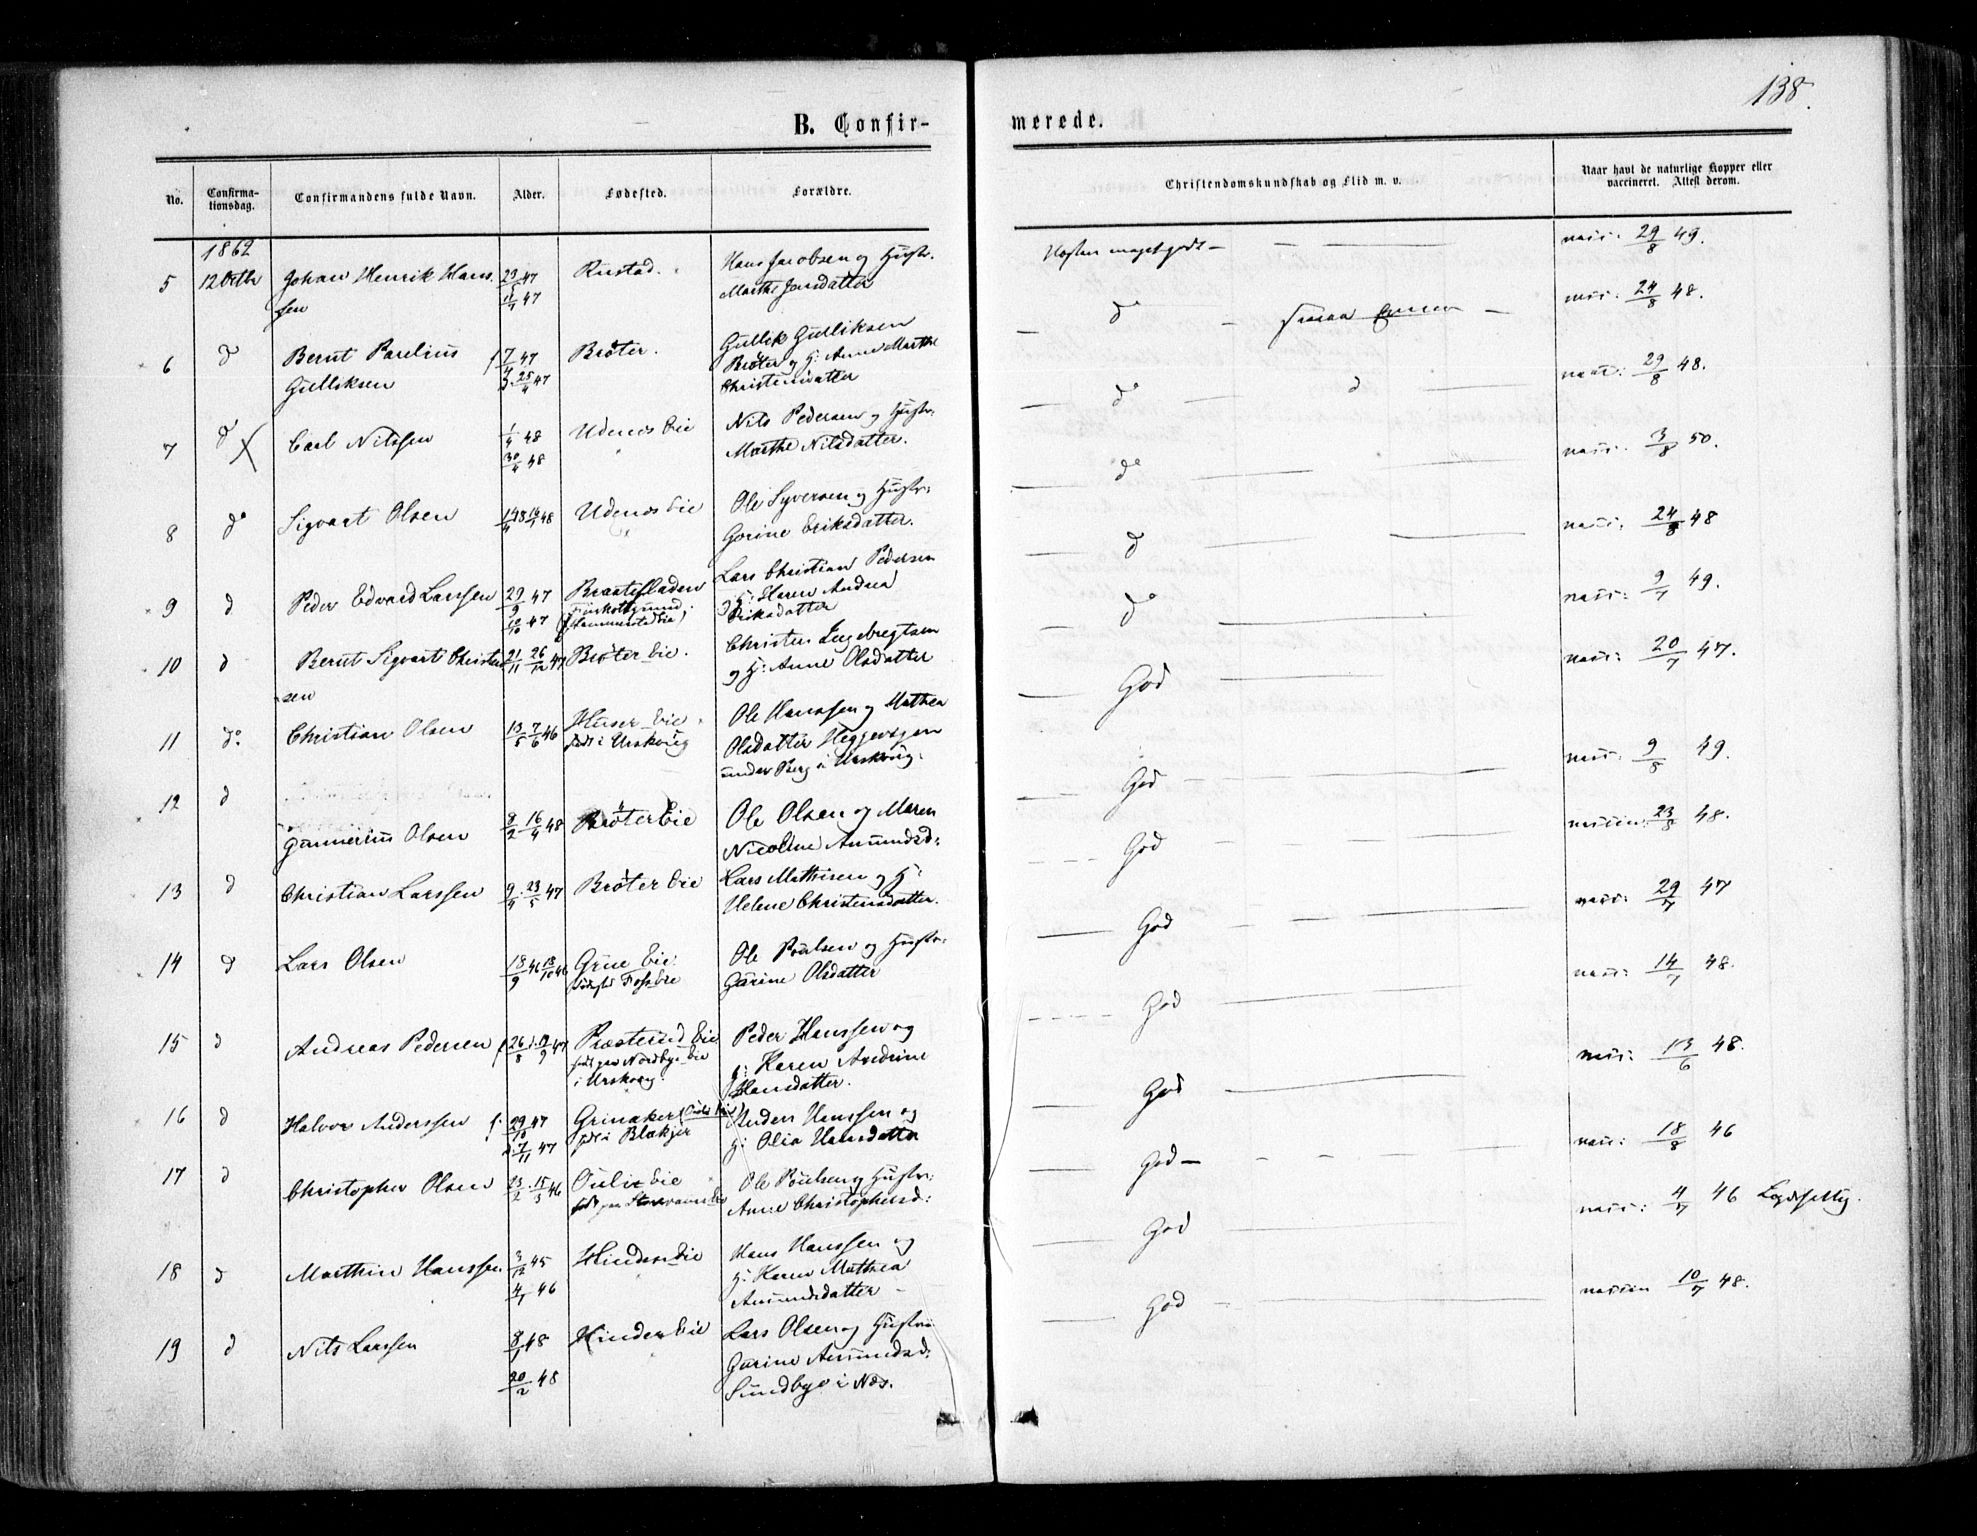 138.
B. Confir-
merede.
No.
Confirma-
tionsdag.
Confirmandens fulde Navn.
Alder.
Fødested.
Forældre.
Christendomskundskab og Flid m. v.
Naar havt de naturlige Kopper eller
vaccineret. Attest derom.
1862
5 12 Octbr Johan Henrik Hans-
sen
Rustad.
Hans Jacobsen og Hustr.
Marthe Jansdatter
Næsten meget godt -
vacc: 29/8 49.
6 d Bernt Parelius
Gulliksen
7/4 47
25/4 47
Brøter.
Gullik Gulliksen
Brøter og H: Anne Marthe
Christensdatter
d°
vacc: 24/8 48.
7 d Carl Nilssen
1/4 48
30/4 48
Udenes Eie
Nils Pedersen og Hustr:
Marthe Nilsdatter.
d° d
vacc: 29/8 48.
8 d° Sigvart Olsen
Udenes Eie
Ole Syversen og Hustr:
Gorine Eriksdatter.
d°
vacc: 3/8 50.
9 d Peder Edvard Larssen
29/9 47
10/10 47
Braatefladen
Lars Christian Pedersen
og H: Karen Andrea
Eriksdatter
d
vacc: 24/8 48
10 d Bernt Sigvart Christen
sen
21/11 26/12 47
Brøter Eie.
Christen Engebregtsen
og H: Anne Olsdatter
d°
vacc: 9/7 49.
11 d° Christian Olsen
13/5 7/6 46
Huser Eie
født i Urskoug
Ole Hanssen og Mathea
Olsdatter Heggevegen
under Berg i Urskoug.
God
vacc: 20/7 47.
12 d
Gunnerius Olsen
8/2 16/4 48
Brøter Eie
Ole Olsen og Maren
Nicoline Amundsd:
God
vacc: 9/8 49.
13 d Christian Larssen
9/4 23/5 47
Brøter Eie
Lars Mathisen og H:
Helene Christensdatter.
God
vaccin: 23/8 48.
14 d Lars Olsen
18/9 46 18/10 46
Grue Eie.
Fødested Foss Eie
Ole Poulsen og Hustr:
Garine Olsdatter
God
vacc: 29/7 47
15 d Andreas Pedersen
Præsterud Eie
født paa Nordbye Eie
i Urskoug.
Peder Hanssen og
H: Karen Andrine
Hansdatter.
God
vacc: 14/7 48.
16 d Halvor Anderssen
f. 29/10 47
d. 7/11 47
Grinaker
født i Blakjer
Anders Hanssen og
H: Olia Hansdatter
God
vacc: 13/6 48.
17 d Christopher Olsen
23/2 15/3 46
Ouli Eie
Ole Poulsen og Hustr:
Anne Christophersd:
God -
vacc: 18/8 46
18 d Marthin Hanssen
3/12 45
4/1 46
Hinden Eie
Hans Hanssen og
H: Karen Mathea
Amundsdatter -
God
vacc: 4/7 46
19 d Nils Larssen
8/1 48
20/2 48
Hinden Eie
Lars Olsen og Hustr:
Garine Amundsd:
Sundbye i Næs.
God
vaccin 10/7 48.